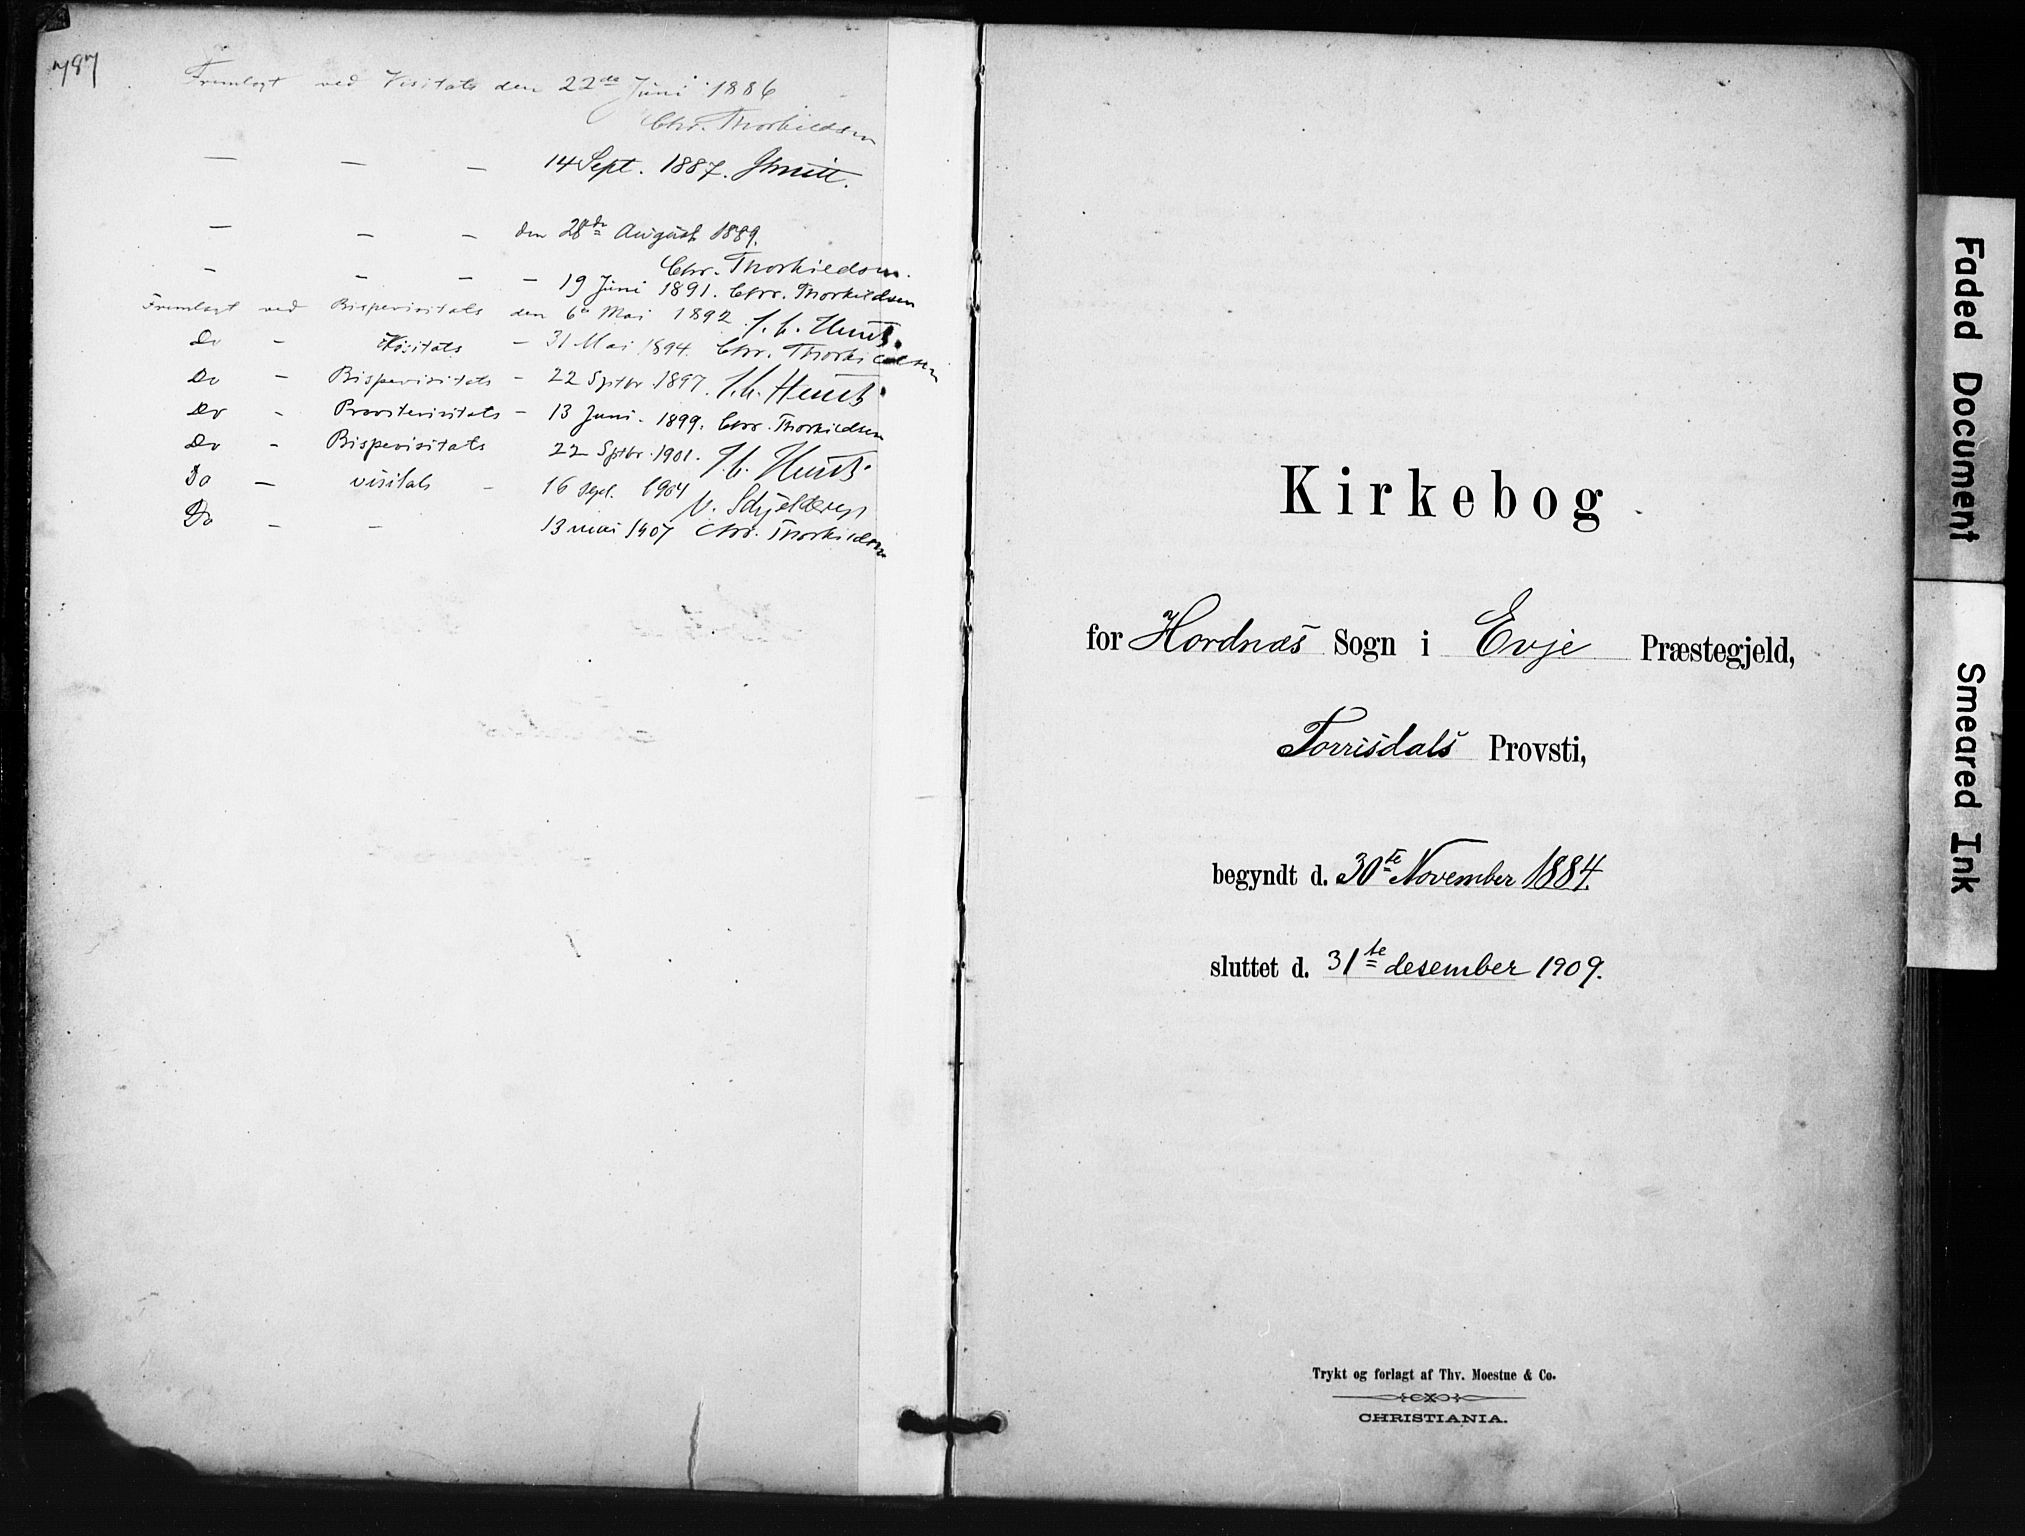 787
Fremlagt ved Visitats den 22de Juni 1886
Chr. Thorkildsen
— — — 14 Sept. 1887. J Smitt.
— — — den 28de August 1889.
Chr. Thorkildsen.
— — — — 19 Juni 1891. Chr. Thorkildsen
Fremlagt ved Bispevisitats den 6te Mai 1892. J. C. Heuch.
Do — Visitats — 31 Mai 1894. Chr. Thorkildsen
Do — Bispevisitats — 22 Septbr. 1897. J. C. Heuch
Do — Provstevisitats — 13 Juni. 1899. Chr. Thorkildsen
Do — Bispevisitats 22 Septbr. 1901. J. C. Heuch.
Do — visitats — 16 sept. 1904 Schjelderup
Do — — 13 mai 1907 Chr. Thorkildsen
Kirkebog
for Hordnæs Sogn i Evje Præstegjeld,
Torrisdals Provsti,
begyndt d. 30te November 1884.
sluttet d. 31te desember 1909.
Trykt og forlagt af Thv. Moestue & Co.
CHRISTIANIA.
Faded Document
Smeared Ink